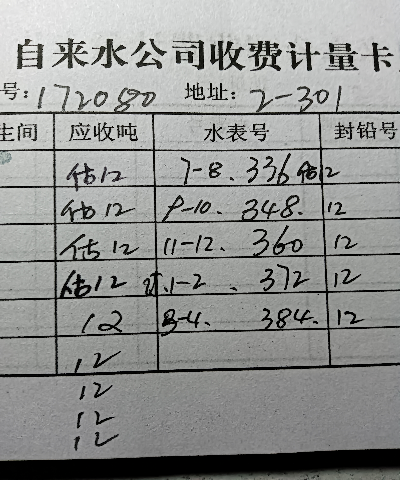 自来水公司收费计量卡
号:172080 地址:2-301
生间 应收吨 水表号 封铅号
估12 7-8. 336 估12
估12 9-10. 348. 12
估12 11-12. 360 12
估12 .1-2. 372 12
12 3-4. 384. 12
12
12
12
12